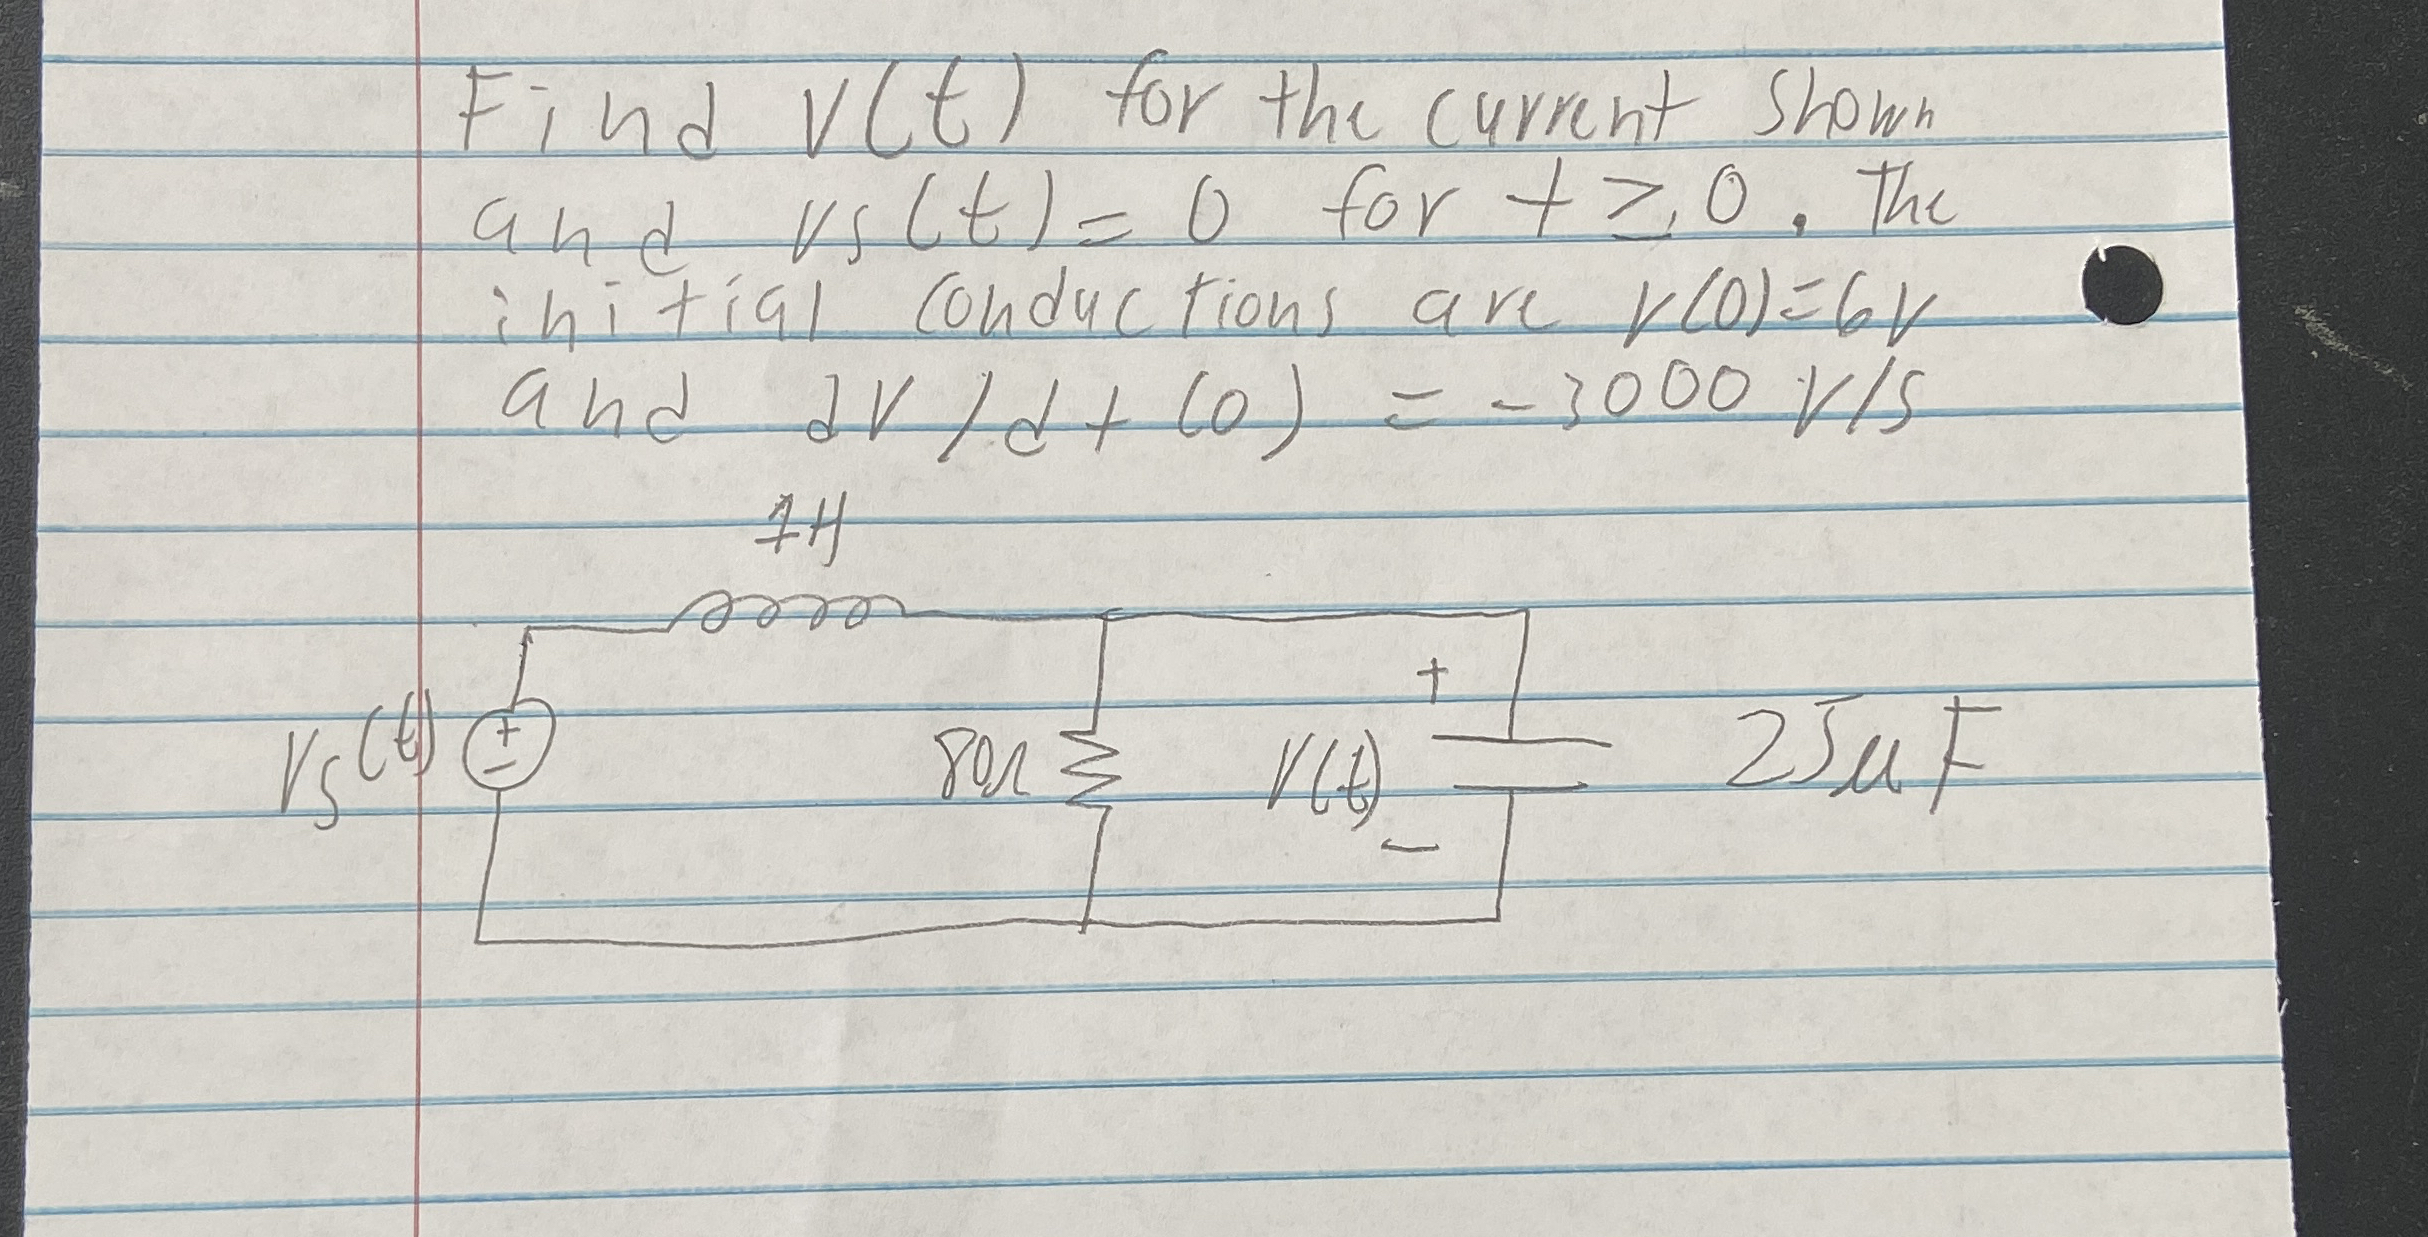 Find v(t) for the current shown
and vs(t) = 0 for t ≥ 0. The
initial conductions are v(0)=6v
and dv/dt (0) = -3000 V/S
1H
Vs(t)
+
-
80Ω
+
V(t)
-
25μF